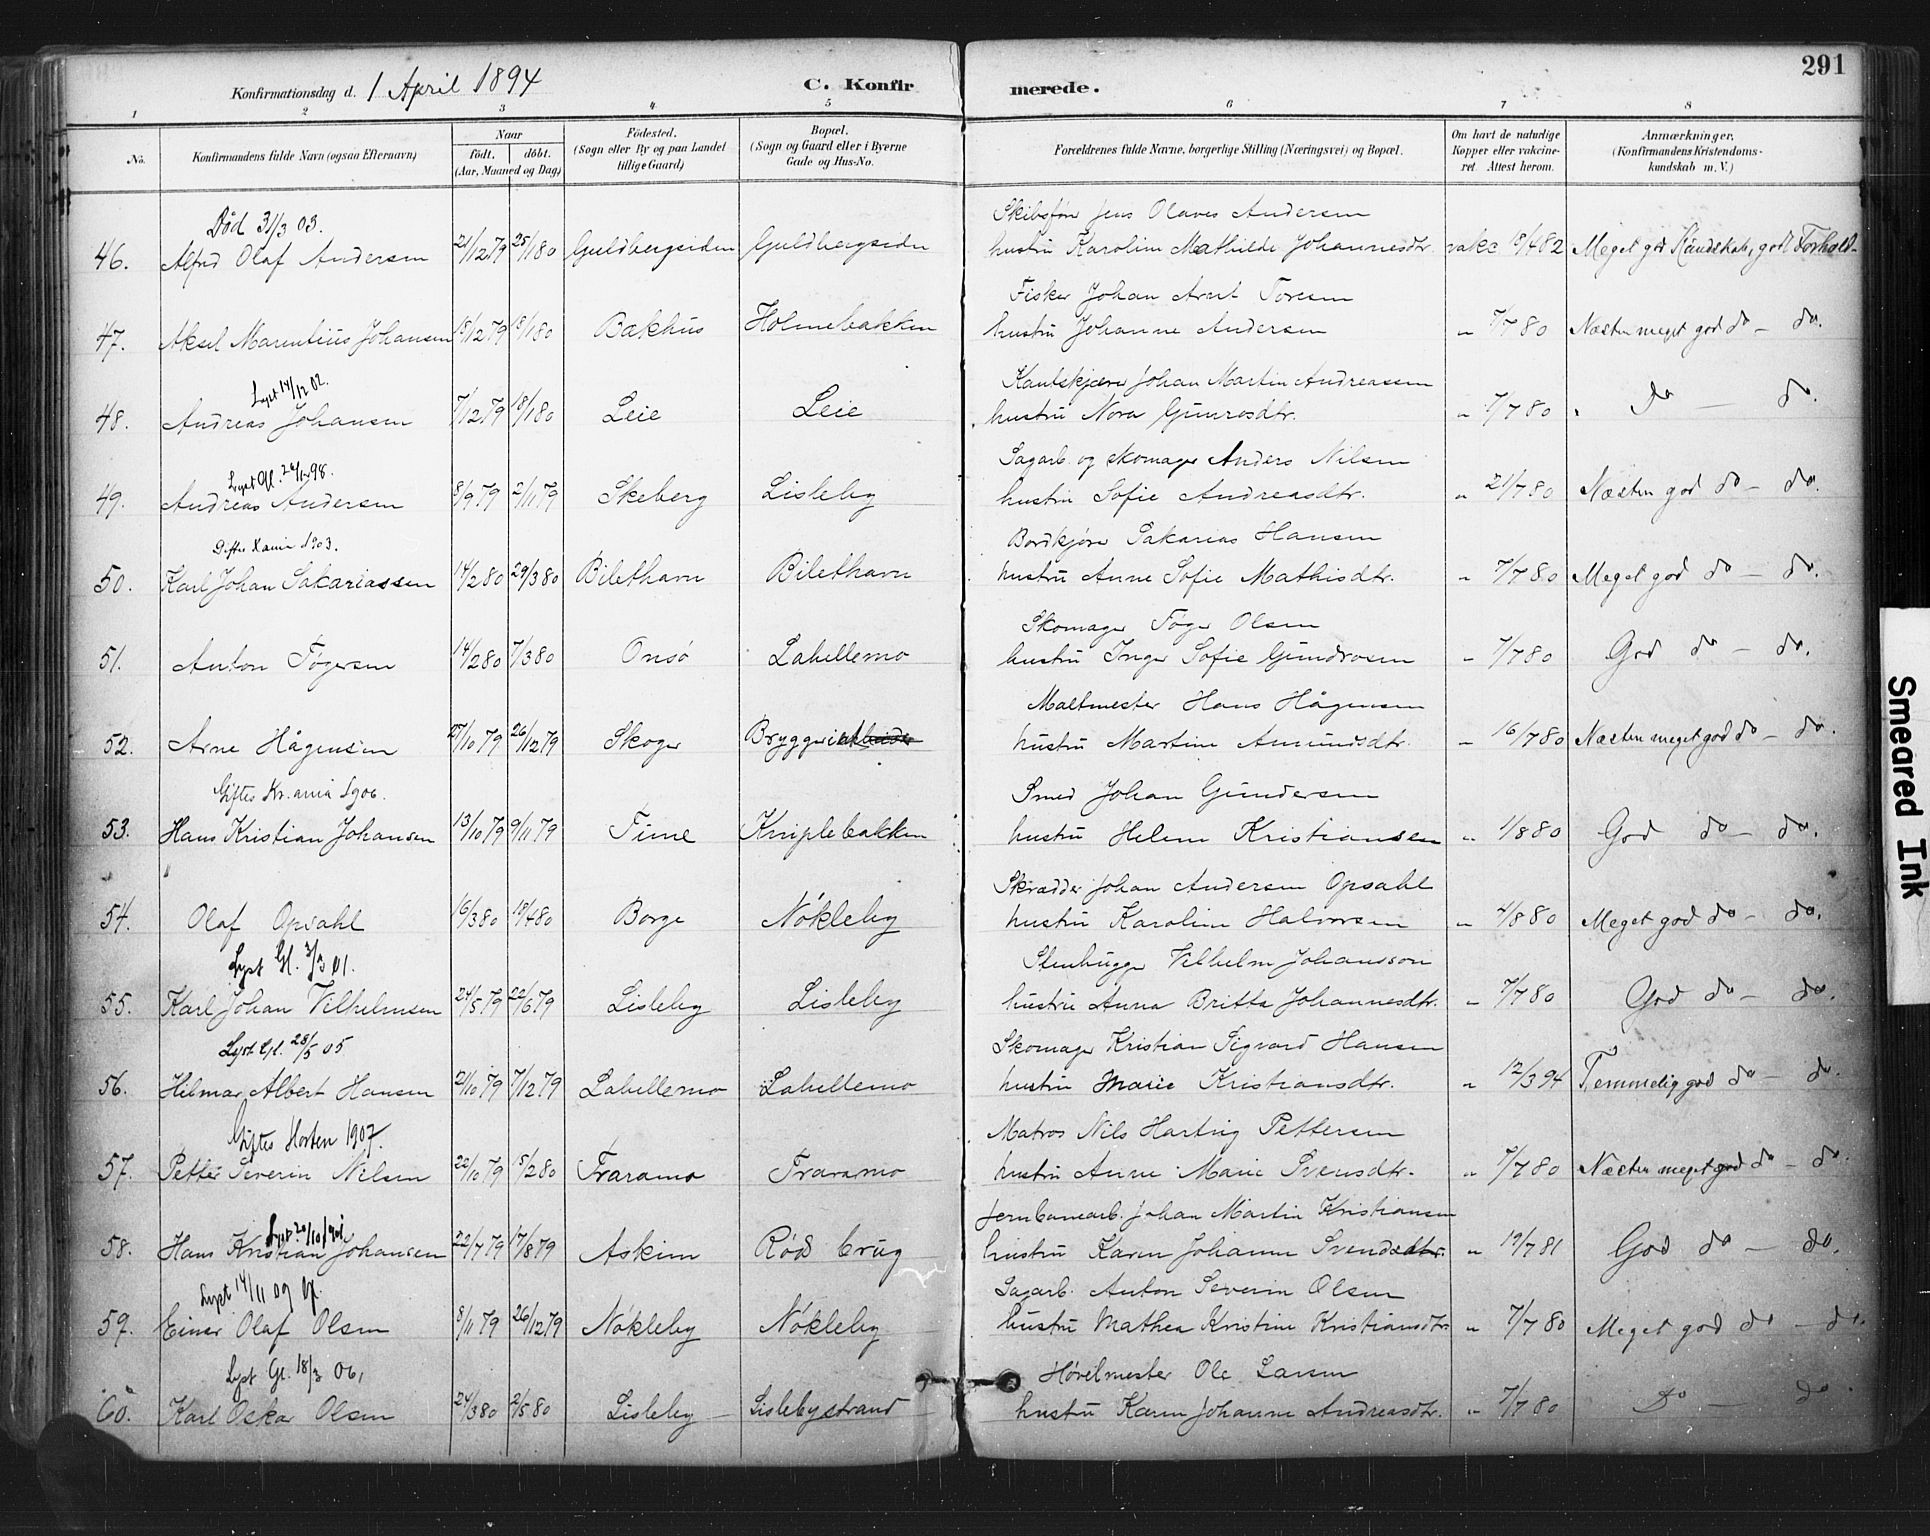 291
Konfirmationsdag d. 1 April 1894
C. Konfirmerede.
1 2 3 4 5 6 7 8
No.
Konfirmandens fulde Navn (ogsaa Efternavn)
Naar
födt. döbt.
(Aar, Maaned og Dag)
Födested.
(Sogn eller By og paa Landet
tillige Gaard)
Bopæl.
(Sogn og Gaard eller i Byerne
Gade og Hus-No.
Forældrenes fulde Navne, borgerlige Stilling (Næringsvei) og Bopæl.
Om havt de naturlige
Kopper eller vakcine-
ret. Attest herom.
Anmærkninger.
(Konfirmandens Kristendoms-
kundskab m. V.)
Död 31/3 03. Skibsför Jens Olaves Andersen
46. Alfred Olaf Andersen 21/12 79 25/1 80 Guldbergsiden Guldbergsiden hustru Karoline Mathilde Johannesdtr. vakc 18/4 82 Meget god Kundskab, godt Forhold
Fisker Johan Arnt Toresen
47. Aksel Marentius Johansen 15/12 79 18/1 80 Bakhus Holmebakken hustru Johanne Andersen " 7/7 80 Næsten meget god do - do.
Lyst 14/12 02. Johan Martin Andreassen
48. Andreas Johansen 7/12 79 18/1 80 Leie Leie hustru Nora Gunrosdtr. " 7/7 80 " Do - do.
Lyst Gl. 98. Sagarb. og skomager Anders Nilsen
49. Andreas Andersen 8/9 79 2/11 79 Skeberg Lisleby hustru Sofie Andreasdtr. " 21/7 80 Næsten god do - do.
Giftes 1903. Bordkjører Sakarias Hansen
50. Karl Johan Sakariassen 14/2 80 29/3 80 Bilethavn Bilethavn hustru Anne Sofie Mathisdtr. " 7/7 80 Meget god do - do.
Skomager Töger Olsen
51. Anton Tögersen 14/2 80 7/3 80 Onsö Lahellemo hustru Inger Sofie Gundrosen " 7/7 80 God do - do.
Maltmester Hans Hågensen
52. Arne Hågensen 27/10 79 26/12 79 Skoger Bryggeriarbeider hustru Martine Amundsdtr. " 16/7 80 Næsten meget god do - do.
Giftes Kr.ania 1906. Smed Johan Gundersen
53. Hans Kristian Johansen 13/10 79 9/11 79 Tune Kniplebakken hustru Helene Kristiansen " 1/8 80 God do - do.
Skrædder Johan Andersen Opsahl
54. Olaf Opsahl 16/3 80 18/4 80 Borge Nökleby hustru Karoline Halvorsen " 4/8 80 Meget god do - do.
Lyst Gl. 3/3 01. Stenhugger Vilhelm Johansson
55. Karl Johan Vilhelmsen 24/5 79 22/6 79 Lisleby Lisleby hustru Anna Britta Johannesdtr. " 7/7 80 God do - do.
Lyst Gl. 28/5 05 Skomager Kristian Sigvard Hansen
56. Hilmar Albert Hansen 2/10 79 7/12 79 Lahellemo Lahellemo hustru Marie Kristiansdtr. " 12/3 94 Temmelig god do - do.
Giftes Horten 1907. Matros Nils Hartvig Pettersen
57. Petter Severin Nilsen 22/10 79 15/2 80 Traramo Traramo hustru Anne Marie Svensdtr. " 7/7 80 Næsten meget god do - do.
Jernbanearb. Johan Martin Kristiansen
58. Hans Kristian Johansen 22/7 79 17/8 79 Askim Röds brug hustru Karen Johanne Svendsdtr. " 19/7 81 God do - do.
Lyst 14/11 09 Gl. Sagarb. Anton Severin Olsen
59. Einar Olaf Olsen 8/11 79 26/12 79 Nökleby Nökleby hustru Mathea Kristine Kristiansdtr. " 7/7 80 Meget god do - do.
Lyst Gl. 18/3 06, Hövelmester Ole Larsen
60. Karl Oskar Olsen 24/3 80 2/5 80 Lisleby Lislebystrand hustru Karen Johanne Andreasdtr. " 7/7 80 Do - do
Smeared Ink